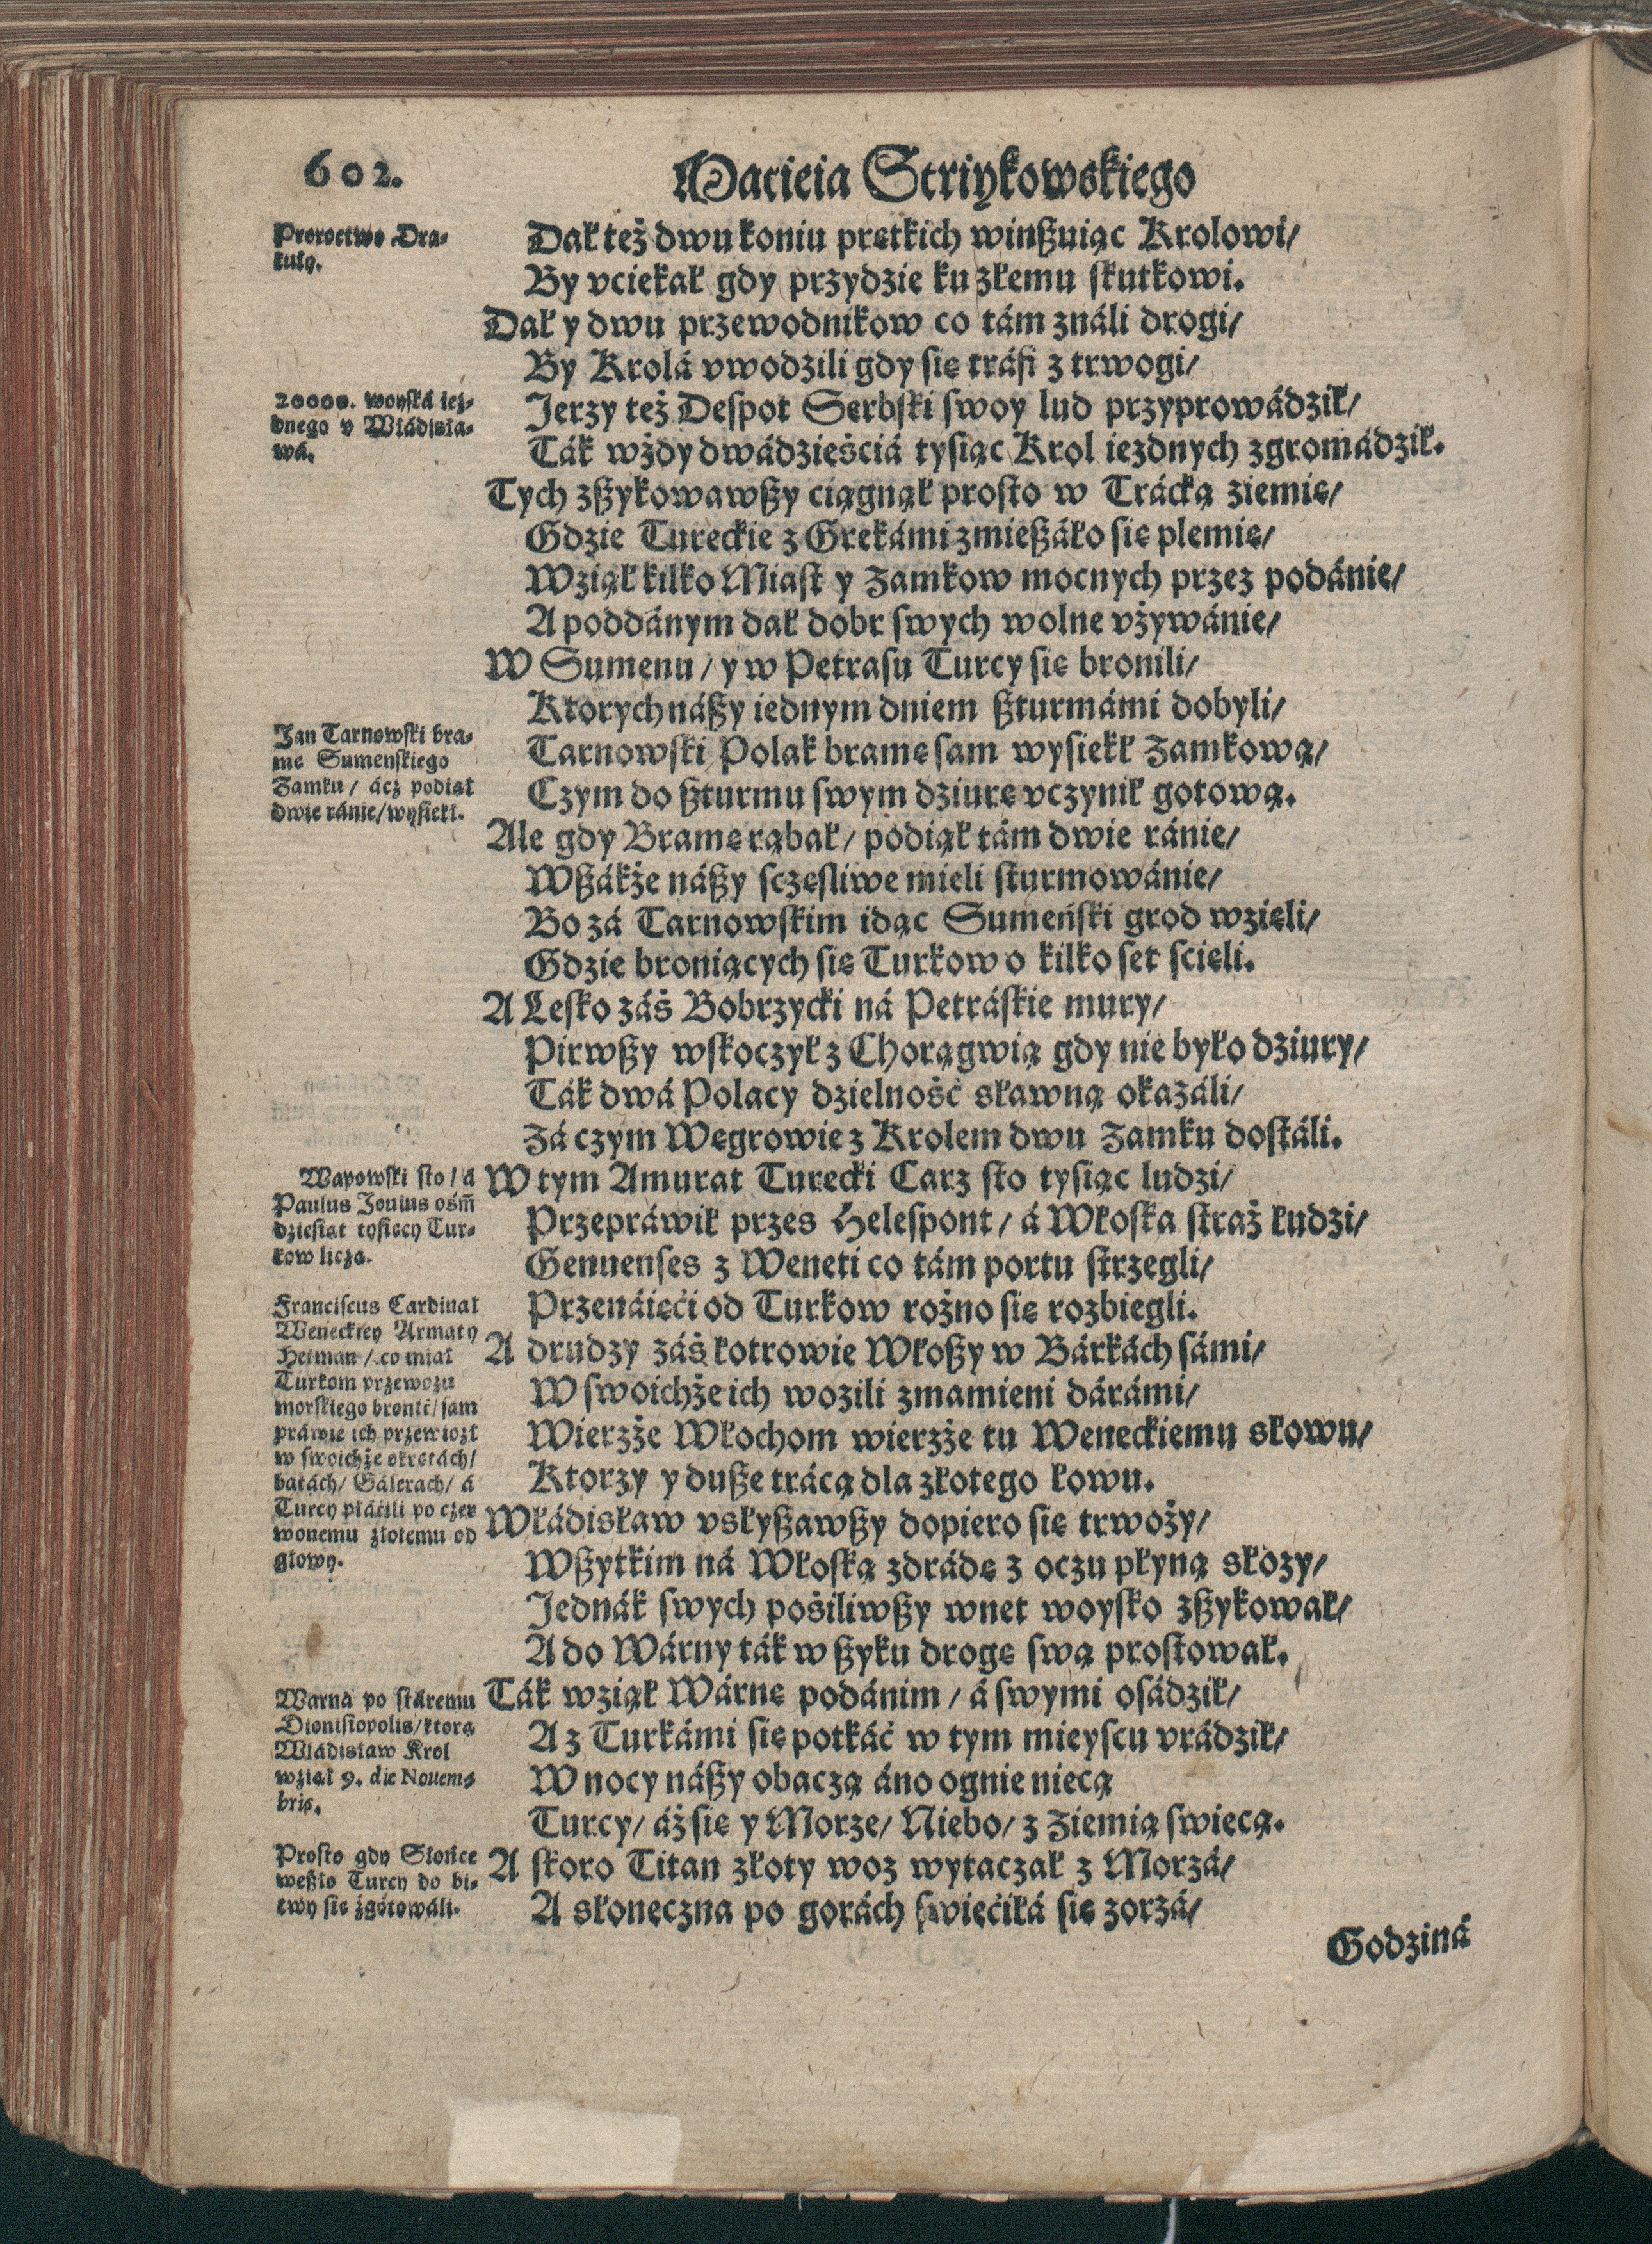 602.
Macieia Striykowskiego
Proroctwo Dra-
kuły.
Dał też dwu koniu prętkich winßuiąc Krolowi/
By vciekał gdy przydzie ku złemu skutkowi.
Dał y dwu przewodnikow co tám ználi drogi/
By Krolá vwodzili gdy się tráfi z trwogi/
20000. woyská iez-
dnego v Władisła-
wá.
Jerzy też Despot Serbski swoy lud przyprowádził/
Ták wżdy dwádzieściá tysiąc Krol iezdnych zgromádził.
Tych zßykowawßy ciągnął prosto w Trácką ziemię/
Gdzie Tureckie z Grekámi zmießáło się plemię/
Wziął kilko Miast y Zamkow mocnych przez podánie/
A poddánym dał dobr swych wolne vżywánie/
W Sumenu / y w Petrasu Turcy się bronili/
Ktorych náßy iednym dniem ßturmámi dobyli/
Jan Tarnowski bra-
mę Sumenskiego
Zamku / ácz podiął
dwie ránie/wysiekł.
Tarnowski Polak bramę sam wysiekł Zamkową/
Czym do ßturmu swym dziurę vczynił gotową.
Ale gdy Bramę rąbał / podiął tám dwie ránie/
Wßákże náßy sczęsliwe mieli sturmowánie/
Bo zá Tarnowskim idąc Sumeński grod wzięli/
Gdzie broniących się Turkow o kilko set scięli.
A Lesko záś Bobrzycki ná Petráskie mury/
Pirwßy wskoczył z Chorągwią gdy nie było dziury/
Ták dwá Polacy dzielność sławną okazáli/
Zá czym Węgrowie z Krolem dwu Zamku dostáli.
Wapowski sto / á
Paulus Jouius ośm̃
dziesiąt tysięcy Tur-
kow liczą.
W tym Amurat Turecki Carz sto tysiąc ludzi/
Przepráwił przes Helespont / á Włoska straż łudzi/
Genuenses z Weneti co tám portu strzegli/
Przenáięći od Turkow rożno się rozbiegli.
Franciscus Cardinał
Weneckiey Armaty
Hetman / co miał
Turkom przewozu
morskiego bronić/ sam
práwie ich przewiozł
w swoichże okrętách/
batách/ Gálerach/ á
Turcy płáćili po czer
wonemu złotemu od
głowy.
A drudzy záś łotrowie Włoßy w Bárkách sámi/
W swoichże ich wozili zmamieni dárámi/
Wierzże Włochom wierzże tu Weneckiemu słowu/
Ktorzy y dußę trácą dla złotego łowu.
Władisław vsłyßawßy dopiero się trwoży/
Wßytkim ná Włoską zdrádę z oczu płyną słozy/
Jednák swych pośiliwßy wnet woysko zßykował/
A do Wárny ták w ßyku drogę swą prostował.
Warná po stáremu
Dionisiopolis/ktorą
Władisław Krol
wziął 9. die Nouem-
bris.
Ták wziął Wárnę podánim / á swymi osádził/
A z Turkámi się potkáć w tym mieyscu vrádził/
W nocy náßy obaczą áno ognie niecą
Turcy/ áż się y Morze/ Niebo/ z Ziemią swiecą.
Prosto gdy Słońce
weßło Turcy do bi-
twy się zgotowáli.
A skoro Titan złoty woz wytaczał z Morzá/
A słoneczna po gorách swięćiłá się zorzá/
Godziná